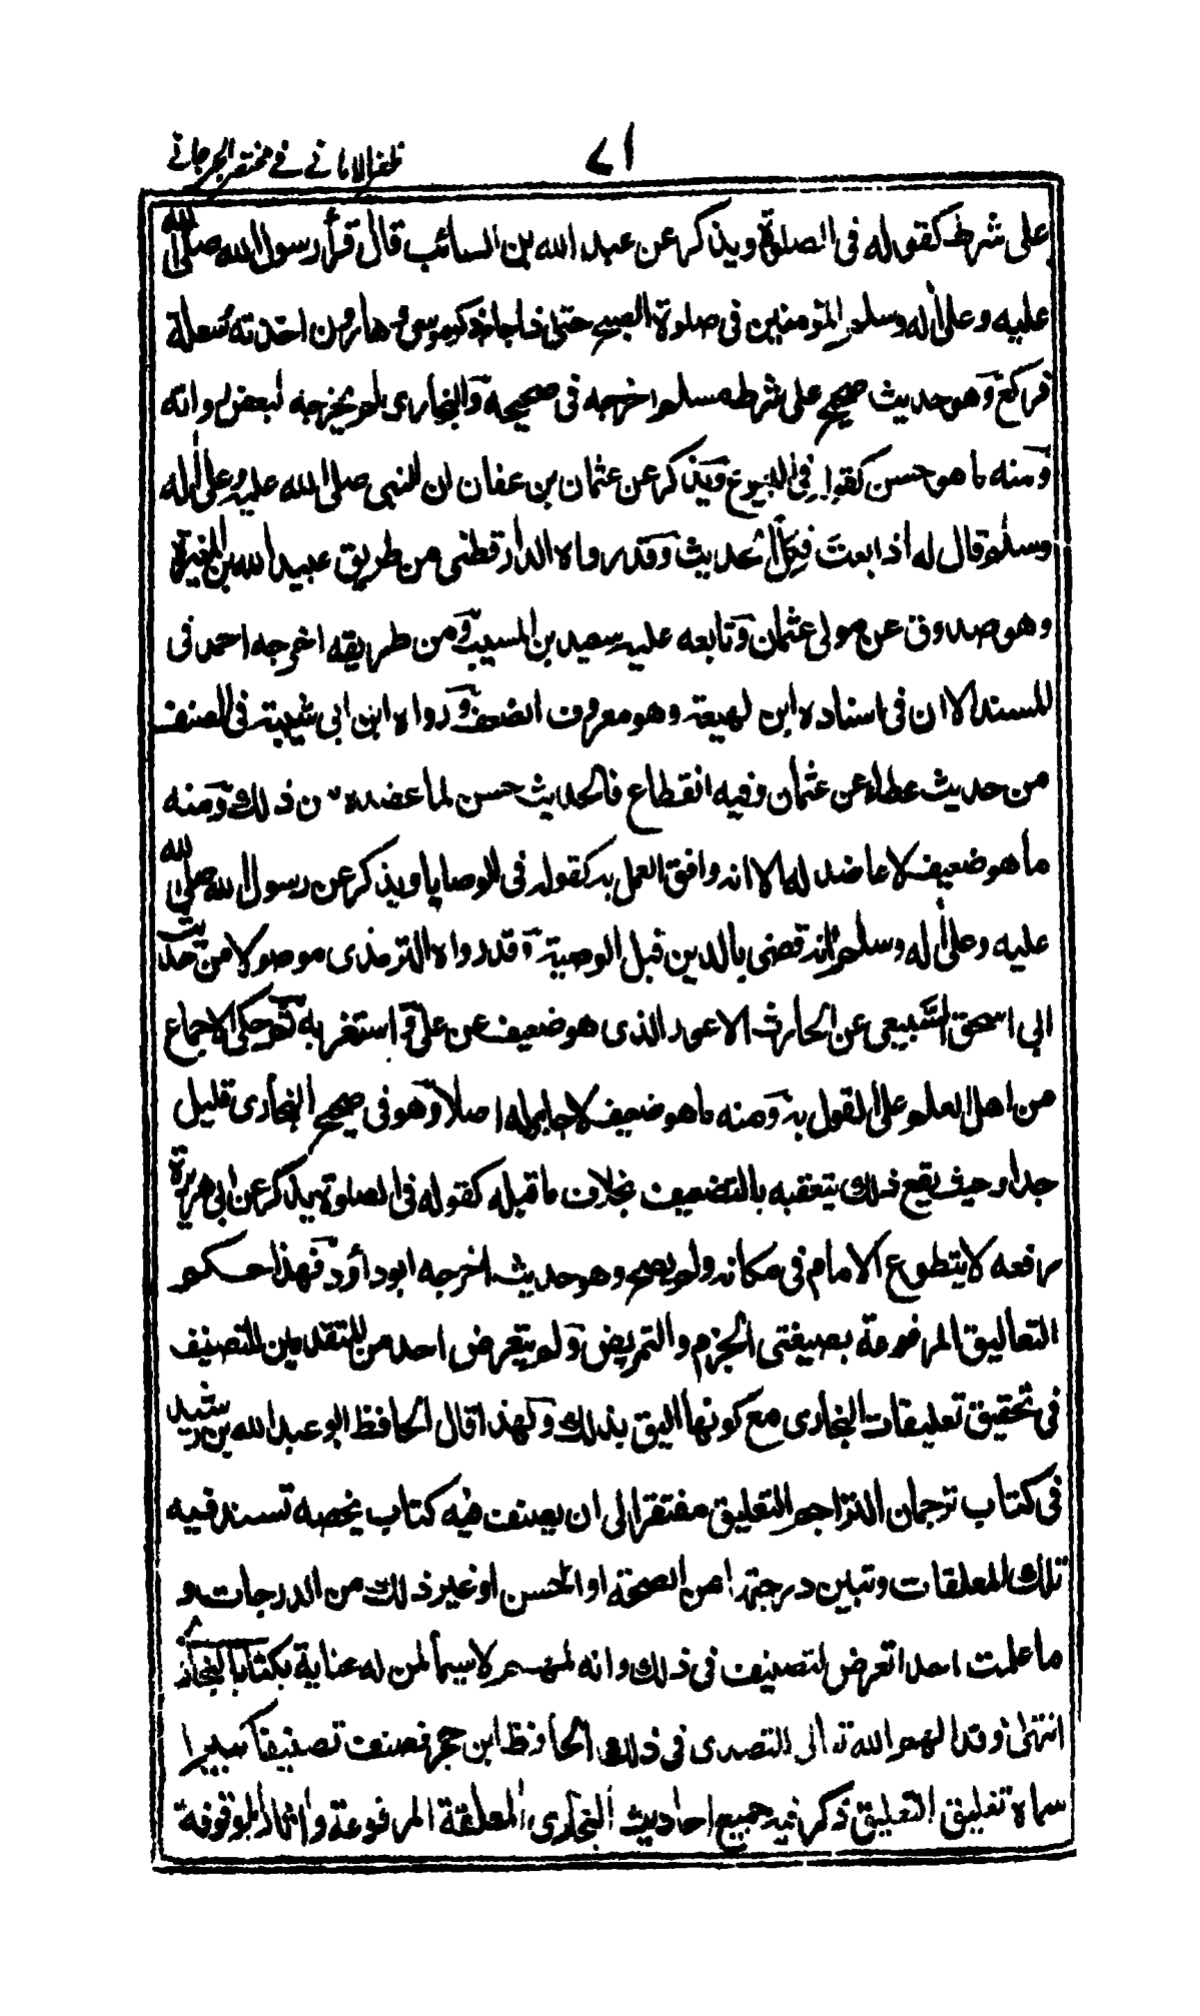 ١٨ ظفر الاماني في مختصر الجرجاني
على شرطه كقوله في الصلوة ويذكر عن عبد الله بن السائب قال قرأ رسول الله صلى الله
عليه وعلى اله وسلم المؤمنين في صلوة الصبح حتى اذا جاء ذكر موسى وهارون اخذته سعلة
فركع وهو حديث صحيح على شرط مسلم اخرجه في صحيحه والبخاري لم يخرجه لبعض رواته
ومنه ما هو حسن كقوله في البيوع ويذكر عن عثمان بن عفان ان النبي صلى الله عليه وعلى اله
وسلم قال له اذا بعت فكل الحديث وقد رواه الدارقطني من طريق عبيد الله بن المغيرة
وهو صدوق عن مولى عثمان وتابعه عليه سعيد بن المسيب ومن طريقه اخرجه احمد في
المسند الا ان في اسناده ابن لهيعة وهو معروف الضعف ورواه ابن ابي شيبة في المصنف
من حديث عطاء عن عثمان وفيه انقطاع فالحديث حسن لما عضده من ذلك ومنه
ما هو ضعيف لا عاضد له الا انه وافق العمل به كقوله في الوصايا ويذكر عن رسول الله صلى الله
عليه وعلى اله وسلم انه قضى بالدين قبل الوصية وقد رواه الترمذي موصولا من حديث
ابي اسحق السبيعي عن الحارث الاعور الذي هو ضعيف عن علي و استغربه ثم حكى الاجماع
من اهل العلم على القول به ومنه ما هو ضعيف لا جابر له اصلا وهو في صحيح البخاري قليل
جدا وحيث يقع ذلك يتعقبه بالتضعيف بخلاف ما قبله كقوله في الصلوة يذكر عن ابي هريرة
رفعه لا يتطوع الامام في مكانه ولم يصح وهو حديث اخرجه ابو داود فهذا حكم
التعاليق المرفوعة بصيغتي الجزم والتمريض ولم يتعرض احد من المتقدمين للتصنيف
في تحقيق تعليقات البخاري مع كونها اليق بذلك ولهذا قال الحافظ ابو عبد الله بن رشيد
في كتاب ترجمان التراجم التعليق مفتقر الى ان يصنف فيه كتاب يخصه تسند فيه
تلك المعلقات وتبين درجتها من الصحة او الحسن او غير ذلك من الدرجات و
ما علمت احدا تعرض لتصنيف في ذلك وانه لمهم لا سيما لمن له عناية بكتاب البخاري
انتهى وقد الهم الله تعالى التصدي في ذلك الحافظ ابن حجر فصنف تصنيفا كبيرا
سماه تغليق التعليق ذكر فيه جميع احاديث البخاري المعلقة المرفوعة واثاره الموقوفة